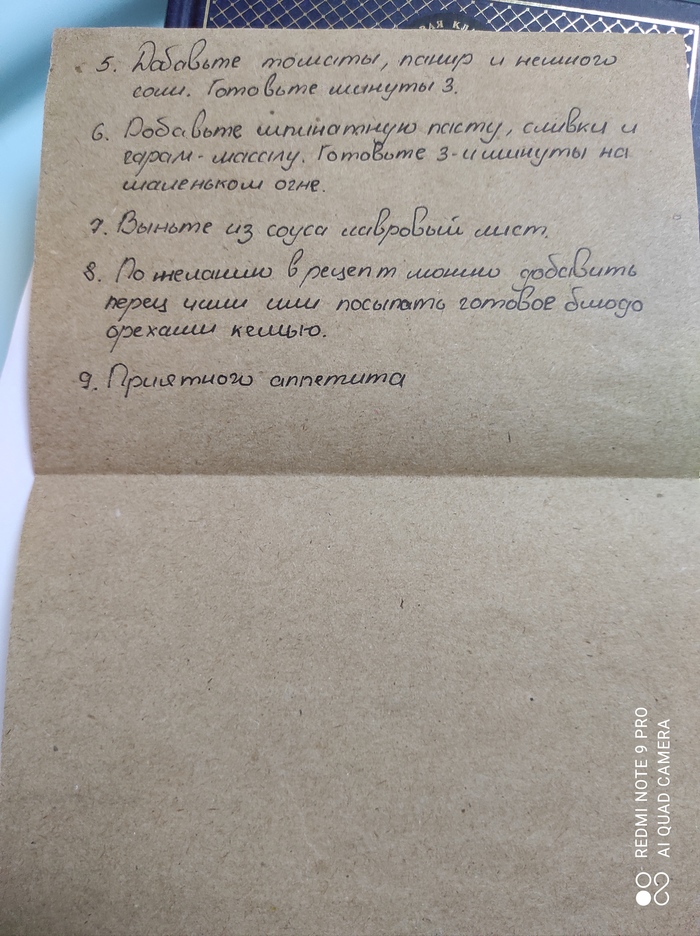 АЯ КЛА
5. Добавьте томаты, панир и немного
соли. Готовьте минуты 3.
6. Добавьте шпинатную пасту, сливки и
гарам-массалу. Готовьте 3-4 минуты на
маленьком огне.
7. Выньте из соуса лавровый лист.
8. По желанию в рецепт можно добавить
перец чили или посыпать готовое блюдо
орехами кешью.
9. Приятного аппетита
REDMI NOTE 9 PRO
AI QUAD CAMERA